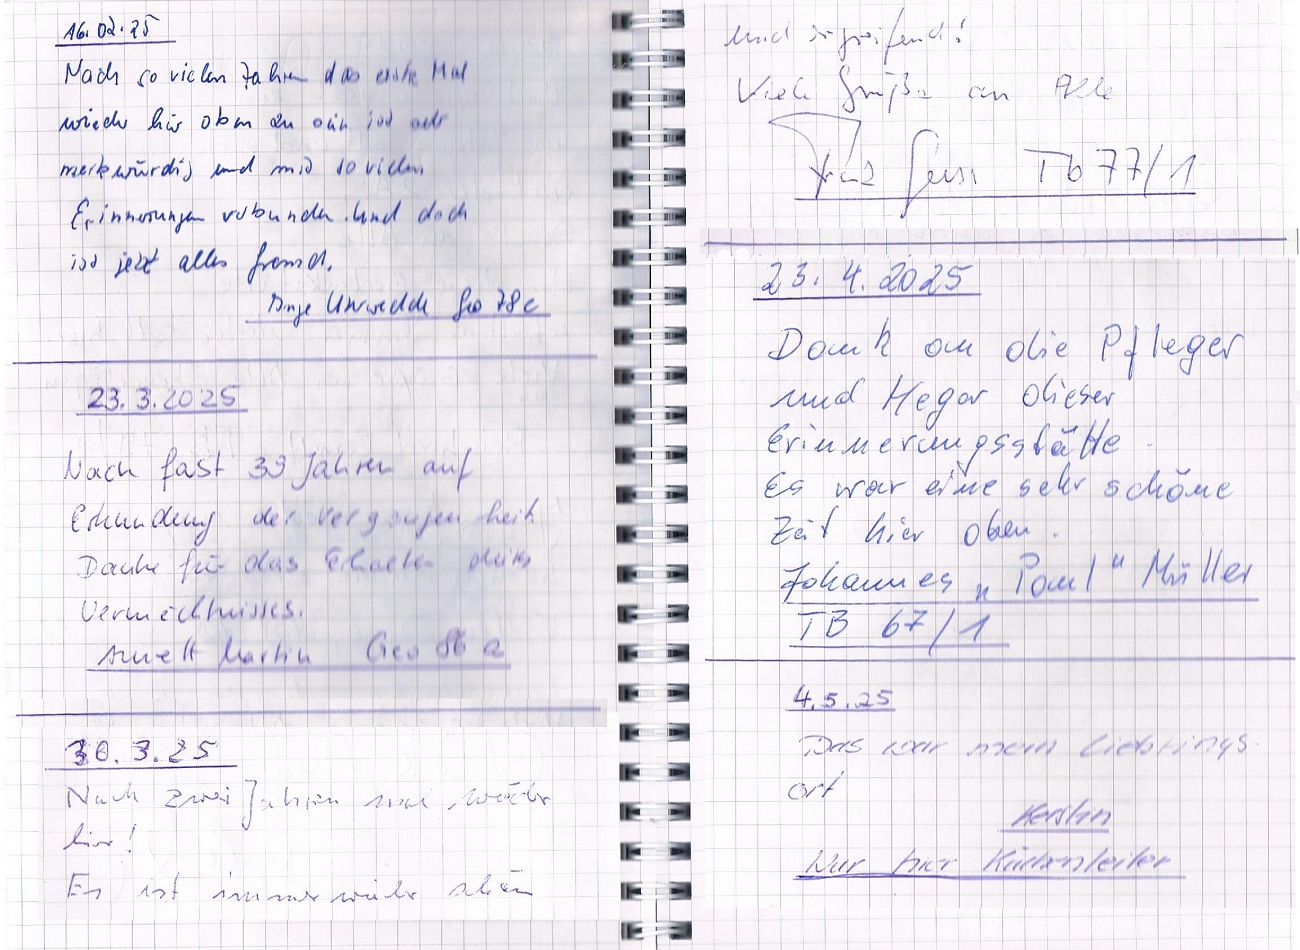 16.02.25
Nach so vielen Jahren das erste Mal
wieder hier oben zu sein ist sehr
merkwürdig und mit so vielen
Erinnerungen verbunden. Und doch
ist jetzt alles fremd.
Inge Geo 78c
23.3.2025
Nach fast 39 Jahren auf
Erkundung der Vergangenheit
Danke für das Erhalten dieses
Vermächtnisses.
Annett Martin Geo 86 a
30.3.25
Nach zwei Jahren mal wieder
hier!
Es ist immer wieder schön
und ergreifend!
Viele Grüße an Alle
Tb 77/1
23.4.2025
Dank an die Pfleger
und Heger dieser
Erinnerungsstätte.
Es war eine sehr schöne
Zeit hier oben.
Johannes „Paul“ Müller
TB 67/1
4.5.25
Das war mein Lieblings-
ort
Kerstin
Nur hier Küchenleiter